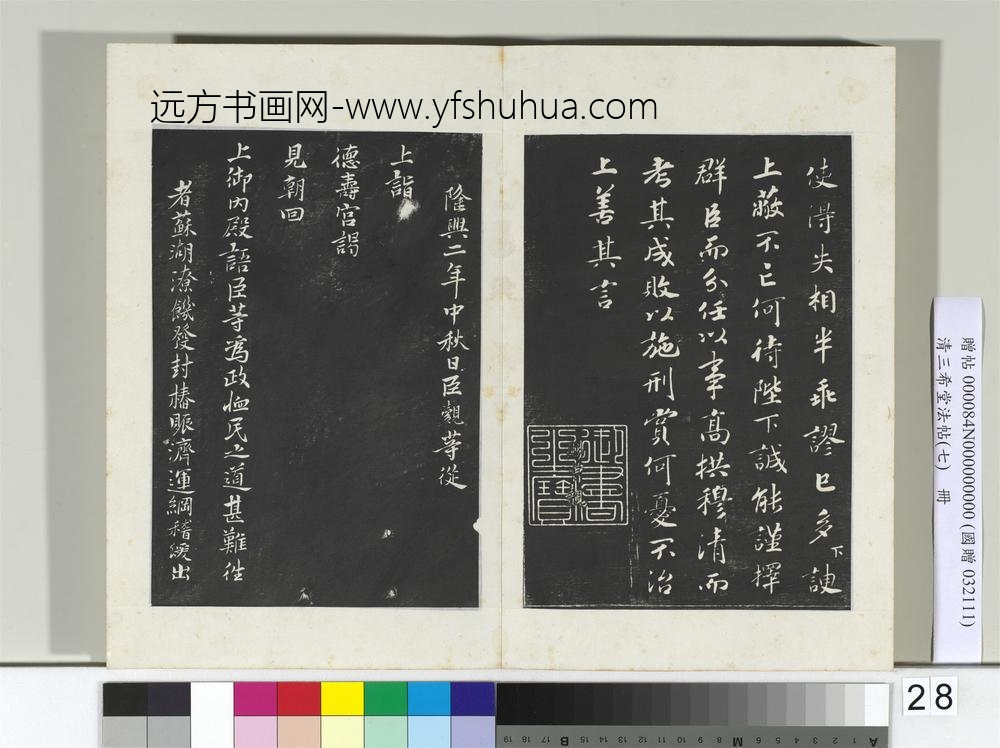 远方书画网-www.yfshuhua.com
使得失相半乖謬已多下諛
上蔽不亡何待陛下誠能謹擇
群臣而分任以事高拱穆清而
考其成敗以施刑賞何憂不治
上善其言
御書之寶
隆興二年中秋日臣觌等從
上詣
德壽宫謁
見朝回
上御内殿語臣等為政恤民之道甚難徃
者蘇湖潦饑發封樁賑濟運綱稽緩出
贈帖 000084N000000000 (國贈 032111)
清三希堂法帖(七) 冊
28